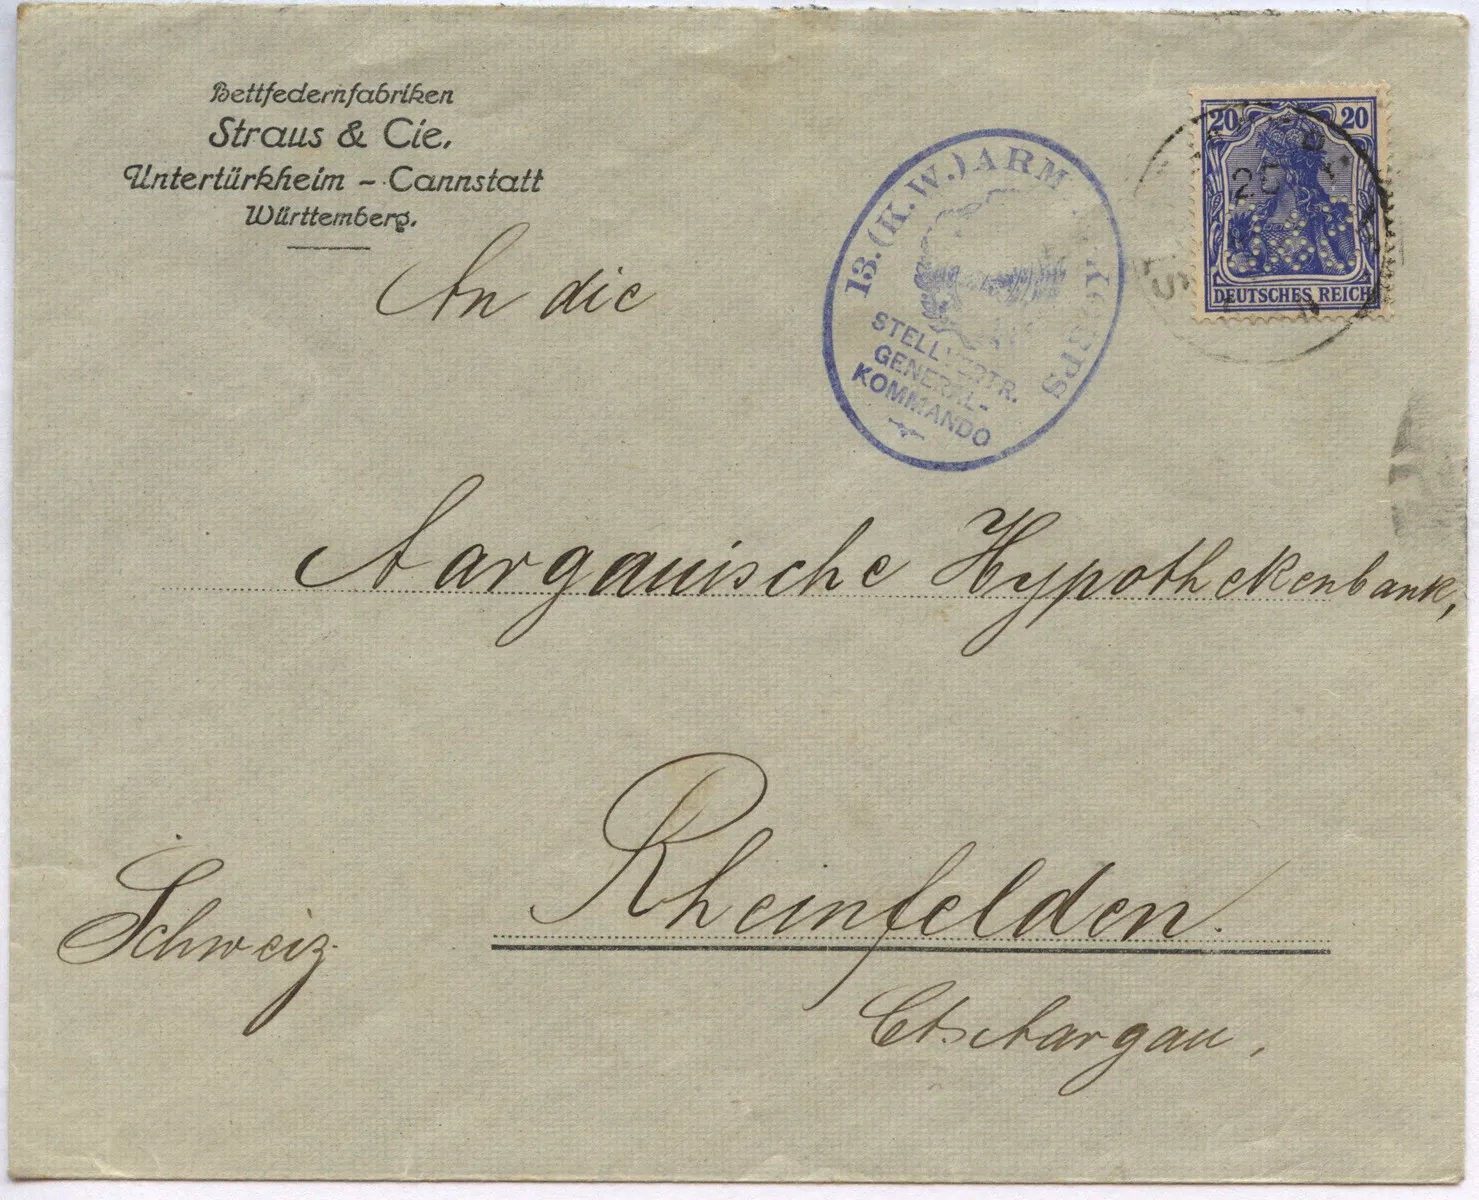 Bettfedernfabriken
Straus & Cie.
Untertürkheim - Cannstatt
Württemberg.
20 20
DEUTSCHES REICH
13. (K.W.) ARM KORPS
STELLVERTR.
GENERAL-
KOMMANDO
An die
Aargauische Hypothekenbank,
Rheinfelden.
Schweiz.
Cts Aargau.